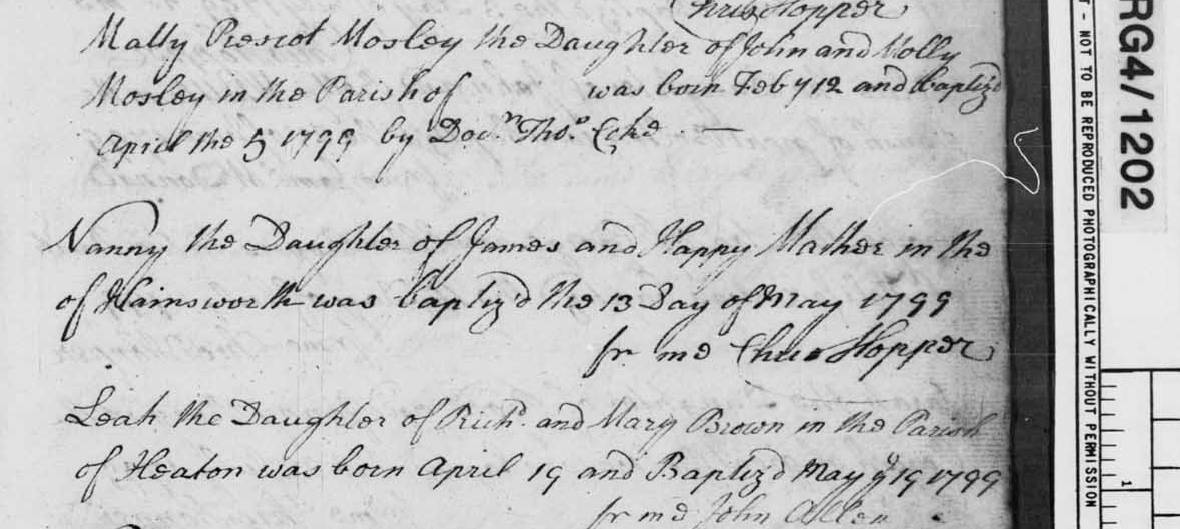 Chris Hopper
Mally Prescot Mosley the Daughter of John and Molly
Mosley in the Parish of was born Feb y 12 and baptiz'd
April the 5 1799 by Docn. Thos.
Nanny the Daughter of James and Happy Mather in the
of Hainsworth was baptiz'd the 13 Day of May 1799
pr me Chris Hopper
Leah the Daughter of Richd. and Mary Brown in the Parish
of Heaton was born April 19 and Baptiz'd May ye 19 1799
pr me John Allen
RG4/1202
- NOT TO BE REPRODUCED PHOTOGRAPHICALLY WITHOUT PERMISSION
1